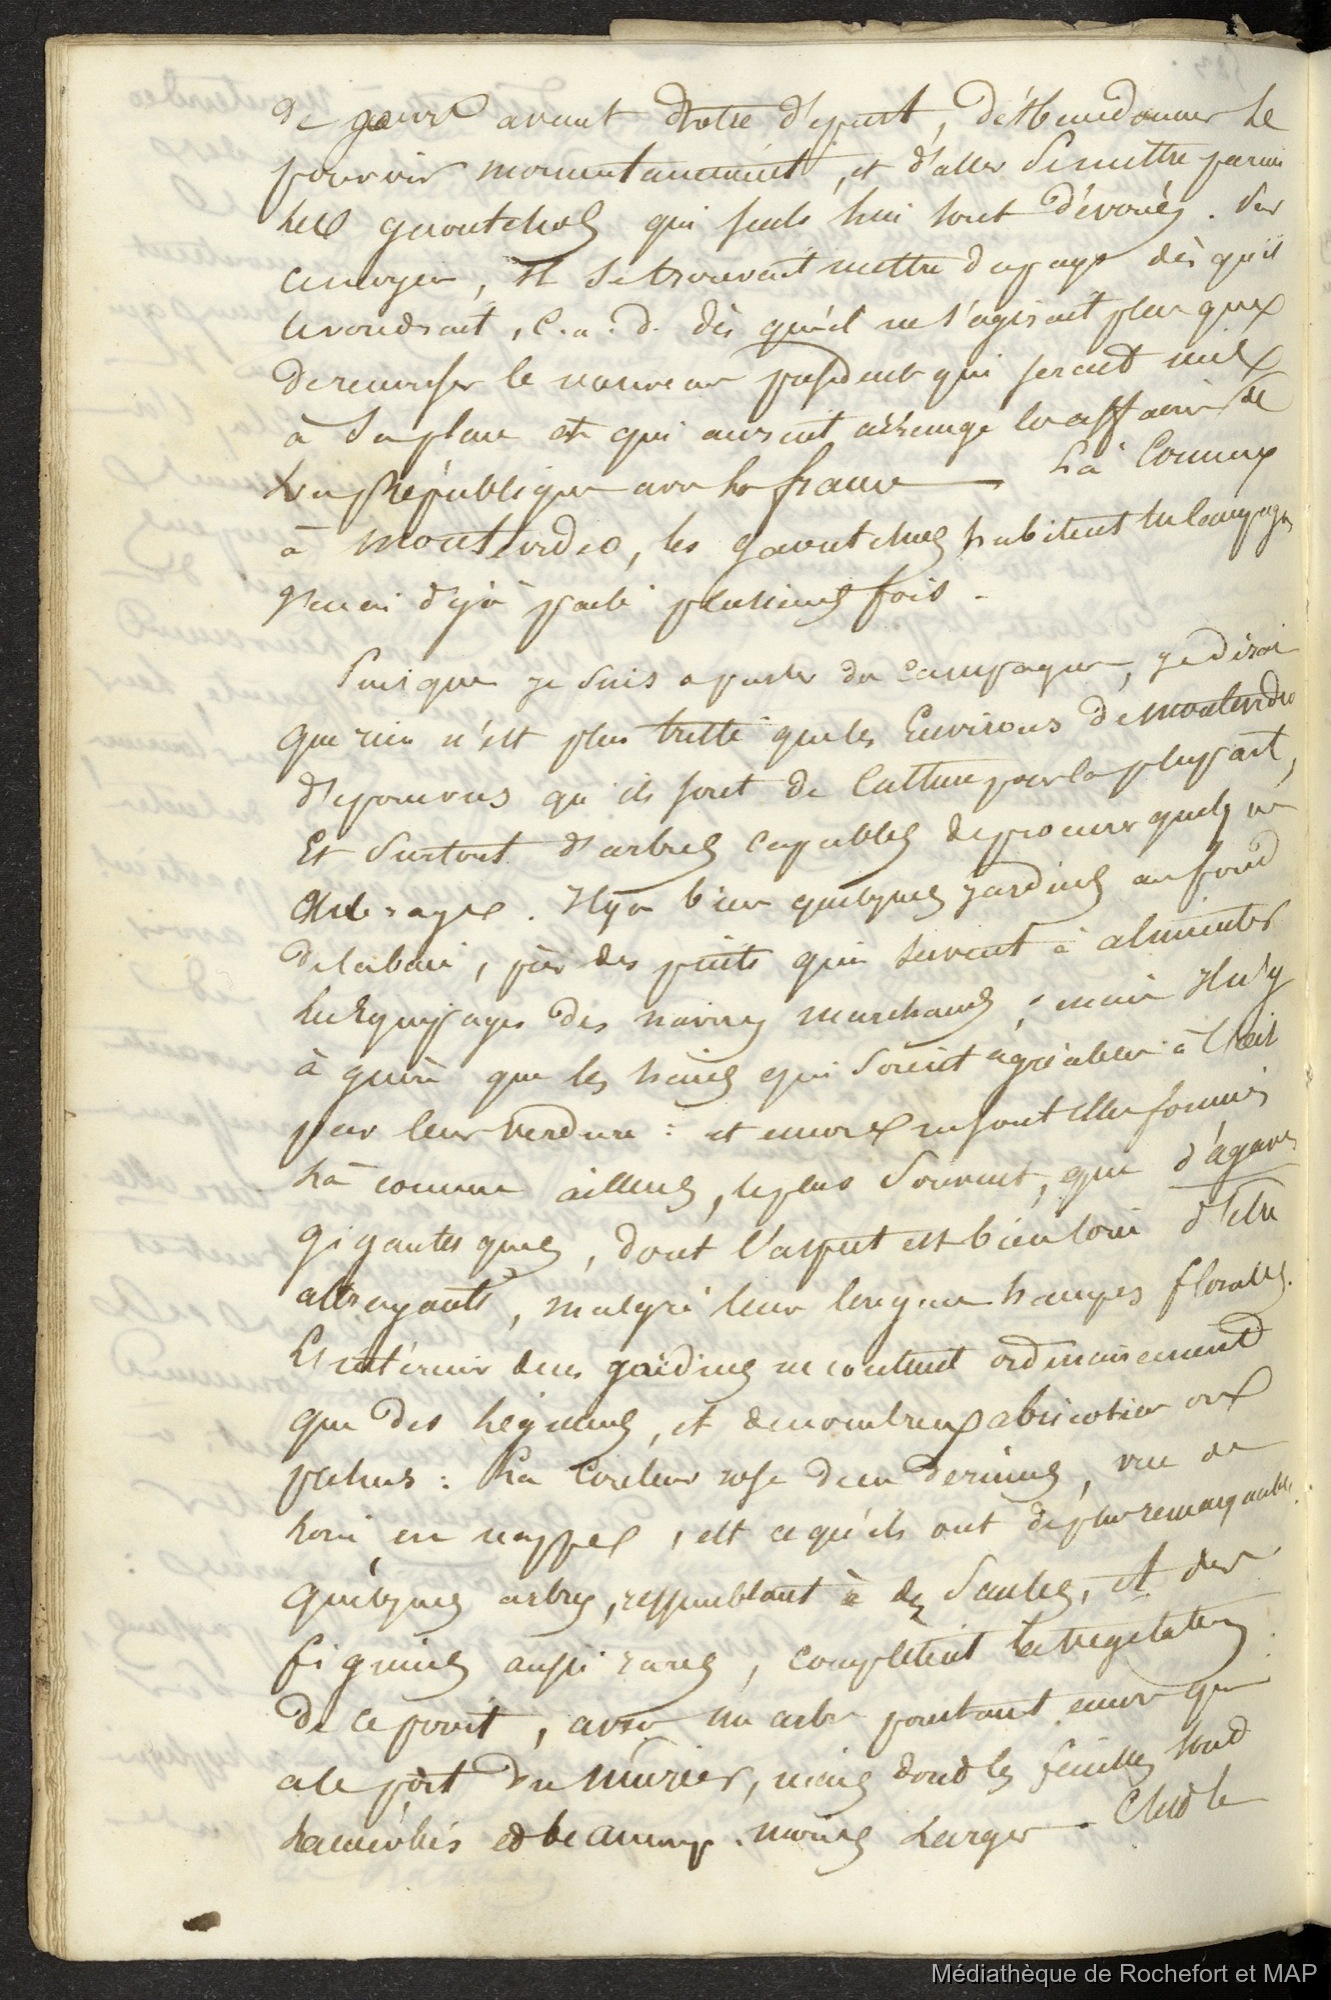 de jours avant notre départ, d'abandonner le
pouvoir momentanément, et d'aller se mettre parmi
les gaoutchos qui seuls lui sont dévoués. Par
ce moyen, il se trouvait mettre du pays dès qu'il
le voudrait, c. a. d. dès qu'il ne s'agirait plus que
de renverser le nouveau président qui serait mis
à sa place et qui aurait arrangé les affaires de
la République avec la france — Là comme
à Montevideo, les gaoutchos habitent les campagnes
j'en ai déjà parlé plusieurs fois.
Puisque je suis a parler de campagne, je dirai
que rien n'est plus triste que les Environs de montevideo
dépourvus qu'ils sont de culture pour la pluspart,
Et Surtout d'arbres capables de procurer quelque
ombrage. Il y a bien quelques jardins au fond
de la baie, près des puits qui servent à alimenter
les Equipages des navires marchands; mais il n'y
à guère que les haies qui soient agréables à l'oeil
par leur verdure : et encore ne sont elles formées
là comme ailleurs, le plus souvent, que d'agaves
gigantesques, dont l'aspect est bien loin d'être
attrayants, malgré leur longue hampes florales.
L'intérieur de ces jardins ne contient ordinairement
que des légumes, et de nombreux abricotiers ou
pechers : La couleur rose de ces derniers, vue de
loin en nappe, est ce qu'ils ont de plus remarquable.
quelques arbres, ressemblant à des Saules, et des
figuiers aussi rares, complètent la végétation
de ce point, avec un arbre pourtant encore qui
a le port du mûrier, mais dont les feuilles sont
lancéolées et beaucoup moins larges. C'est le